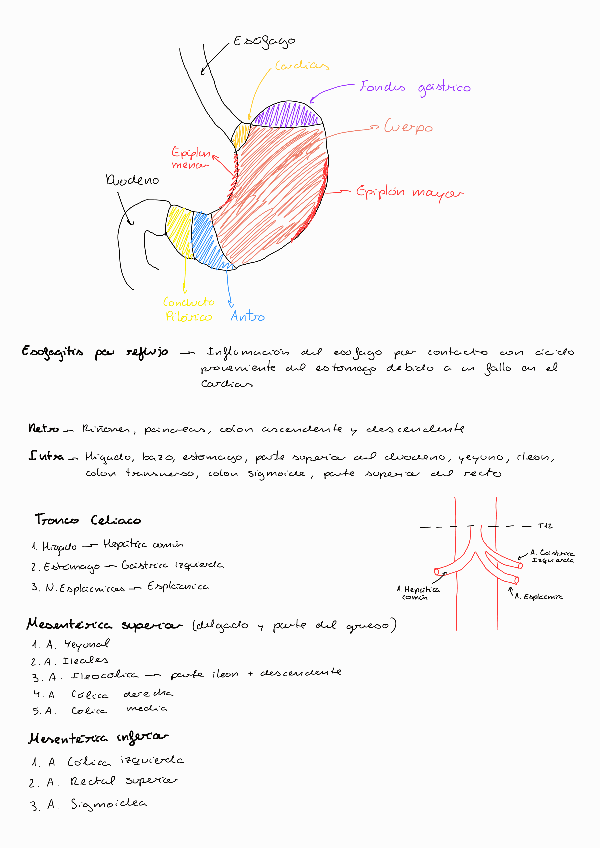 Esófago
Cardias
Fondus gástrico
Cuerpo
Epiplón
menor
Duodeno
Epiplón mayor
Conducto
Pilórico
Antro
Esofagitis por reflujo → Inflamación del esofago por contacto con ácido
proveniente del estomago debido a un fallo en el
Cardias
Retro → Riñones, pancreas, colon ascendente y descendente
Intra → Higado, bazo, estomago, parte superior del duodeno, yeyuno, ileon,
colon transverso, colon sigmoide, parte superior del recto
Tronco Celiaco
1. Higado → Hepática común
2. Estomago → Gástrica izquierda
3. N. Esplacnicas → Esplacnica
T12
A. Gástrica
Izquierda
A. Hepática
común
A. Esplacnia
Mesentérica superior (delgado y parte del grueso)
1. A. Yeyunal
2. A. Ileales
3. A. Ileocólica → parte ileon + descendente
4. A Cólica derecha
5. A. Colica media
Mesentérica inferior
1. A Cólica izquierda
2. A. Rectal superior
3. A. Sigmoidea